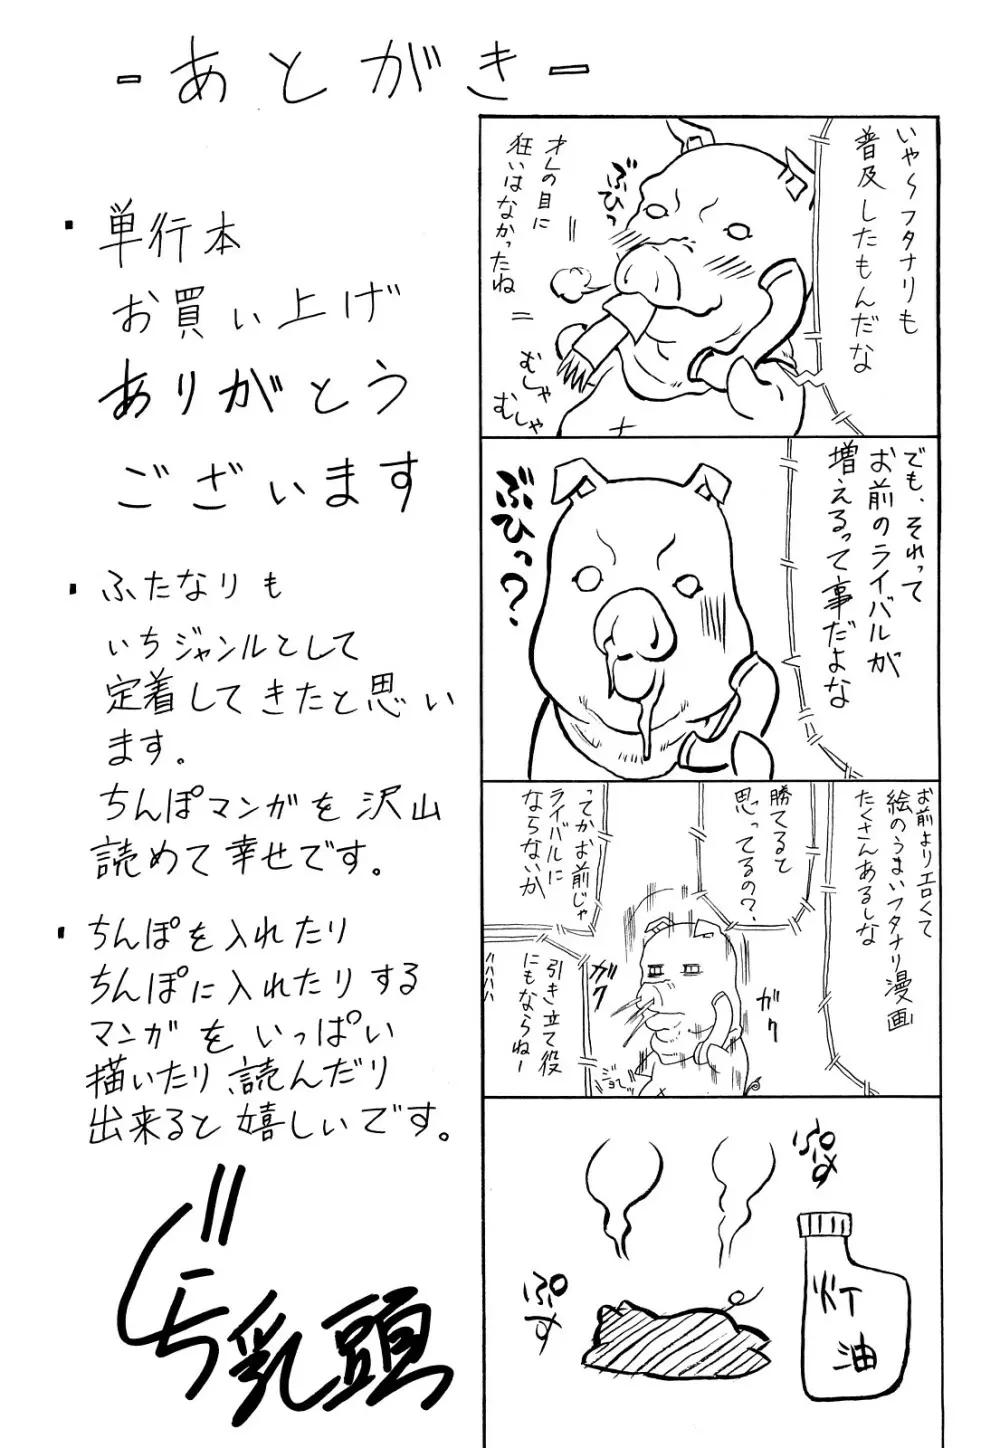 -あとがき-
・単行本
お買い上げ
ありがとう
ございます
・ふたなりも
いちジャンルとして
定着してきたと思い
ます。
ちんぽマンガを沢山
読めて幸せです。
・ちんぽを入れたり
ちんぽに入れたりする
マンガをいっぱい
描いたり、読んだり
出来ると嬉しいです。
乳頭
いや〜フタナリも
普及したもんだな
ぶひっ
オレの目に
狂いはなかったね
むしゃ
むしゃ
でも、それって
お前のライバルが
増えるって事だよな
ぶひっ?
お前よりエロくて
絵のうまいフタナリ漫画
たくさんあるしな
勝てるると
思ってるの?
ってかお前じゃ
ライバルに
ならないか
引き立て役
にもならねー
ハハハハ
ガク
ガク
ジョで
ぷす
ぷす
灯油